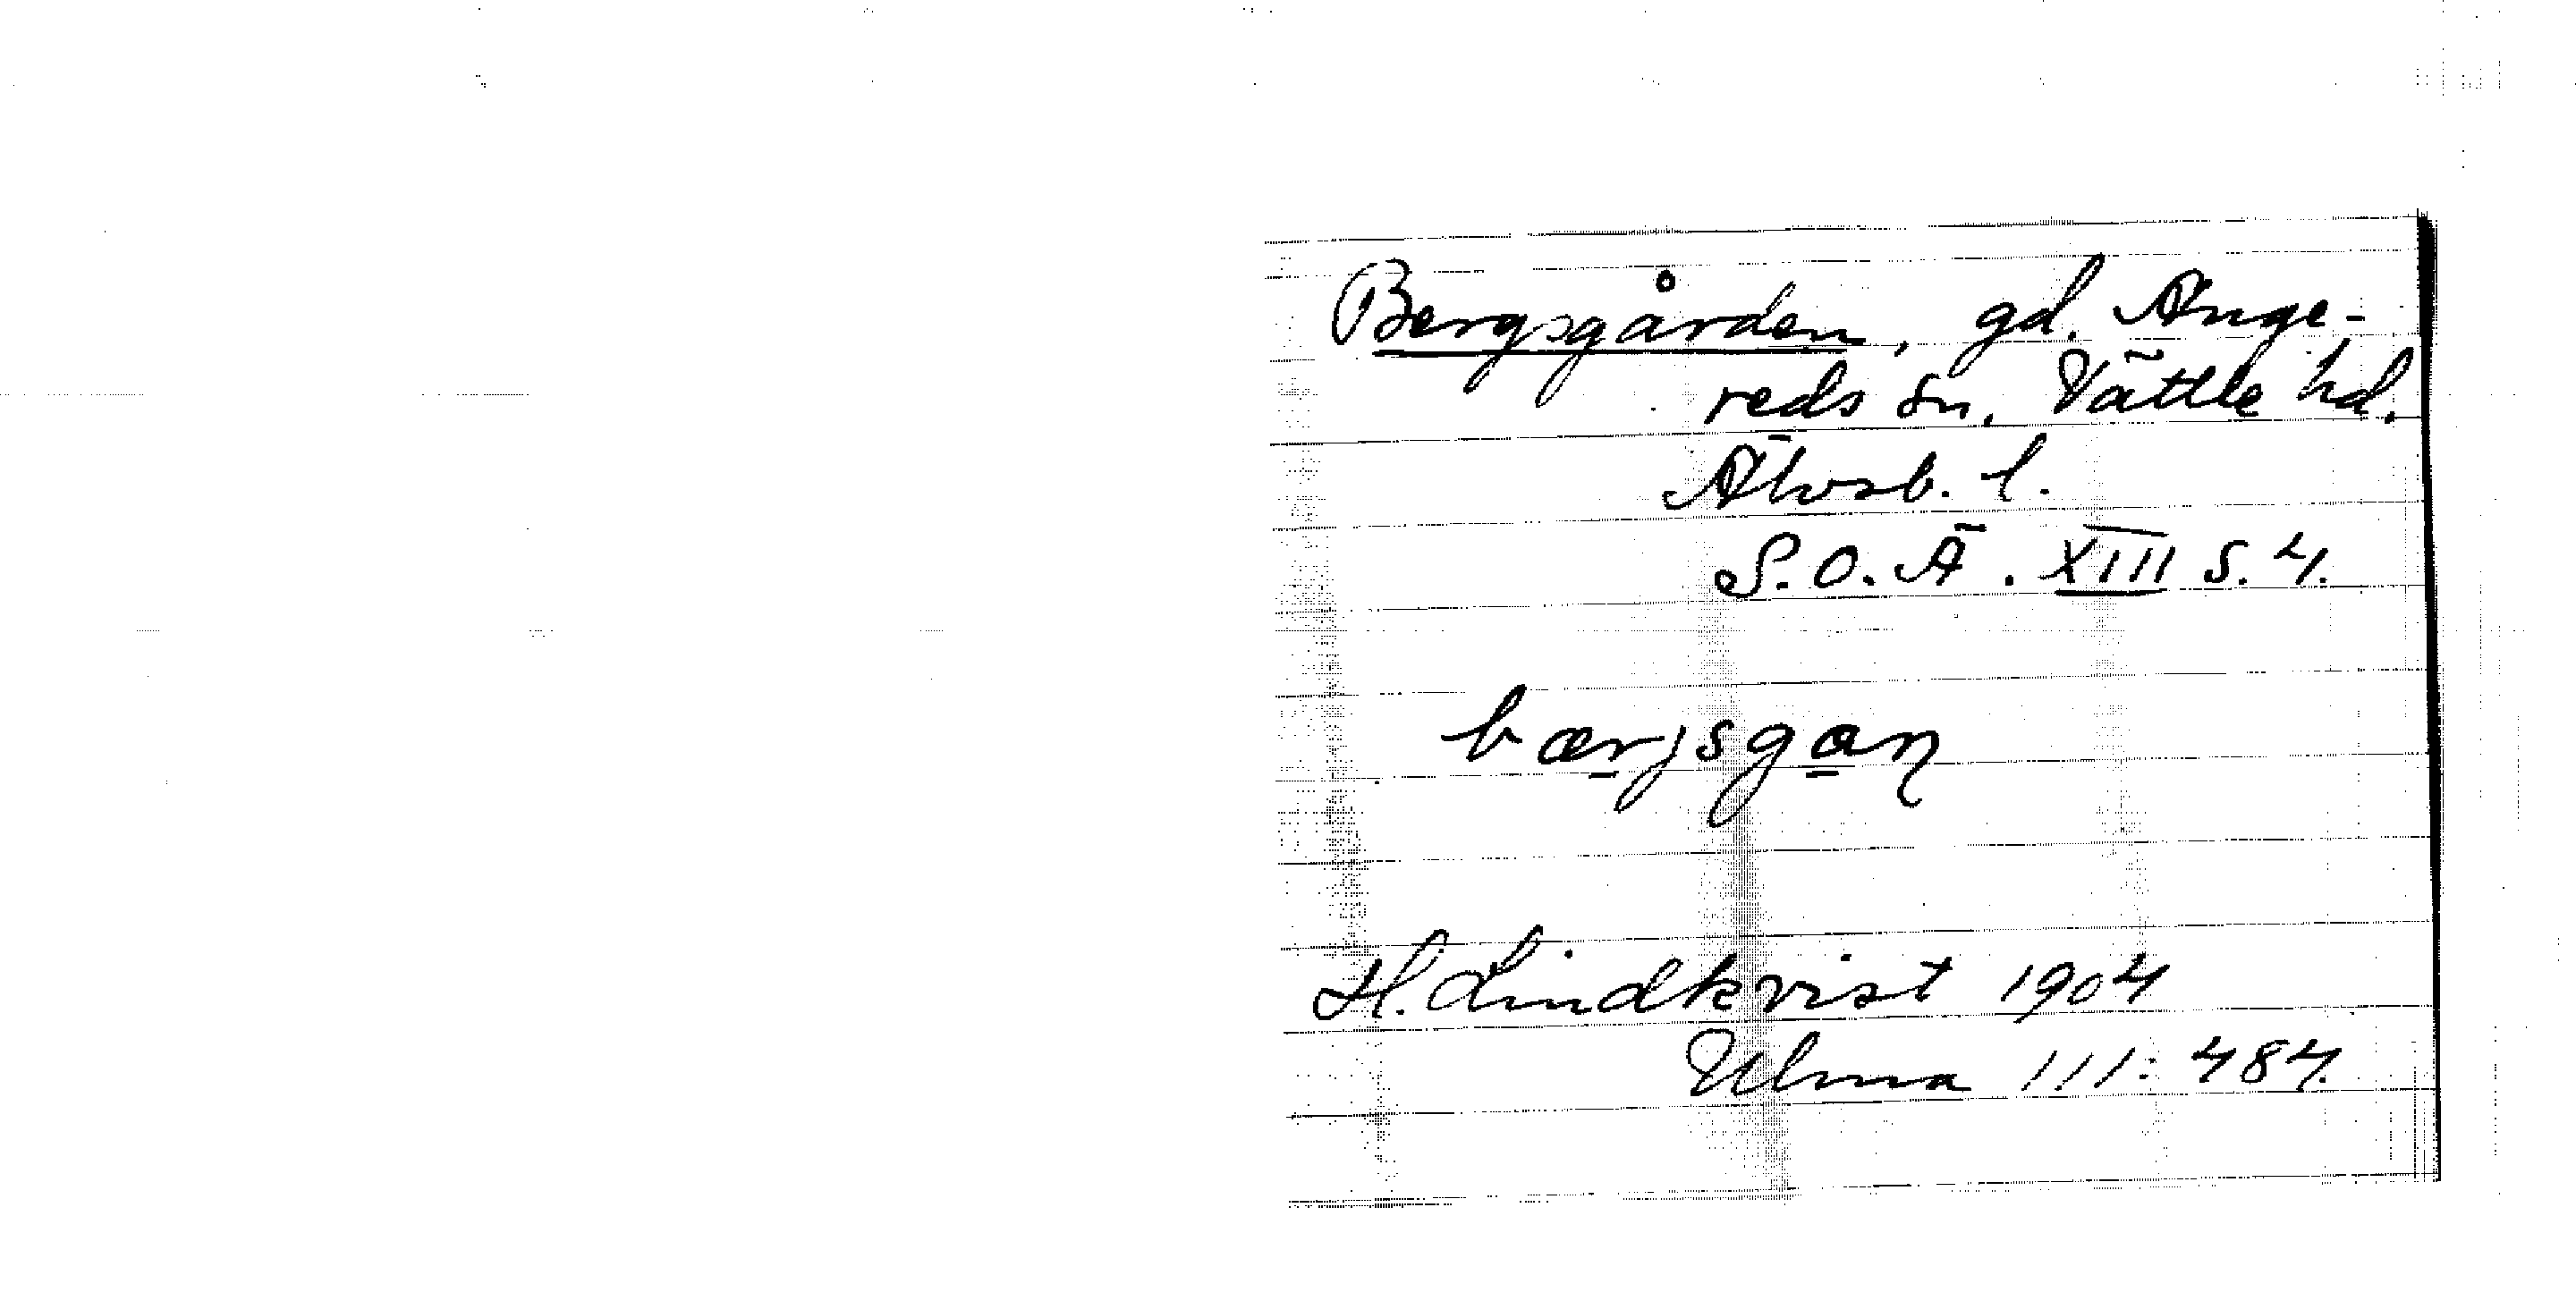 Bergsgården, gd. Ange-
reds sn. Vättle hd.
Älvsb. l.
S. O. Ä. XIII s. 4.
bærjsgaɳ
H. Lindkvist 1904
Ulma 111: 484.